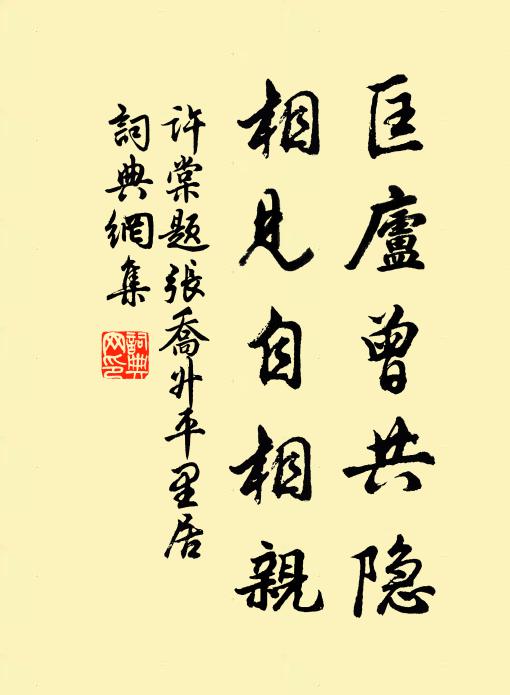 匡廬曾共隐
相見自相親
許棠题張喬升平里居
詞典網集
詞典網印